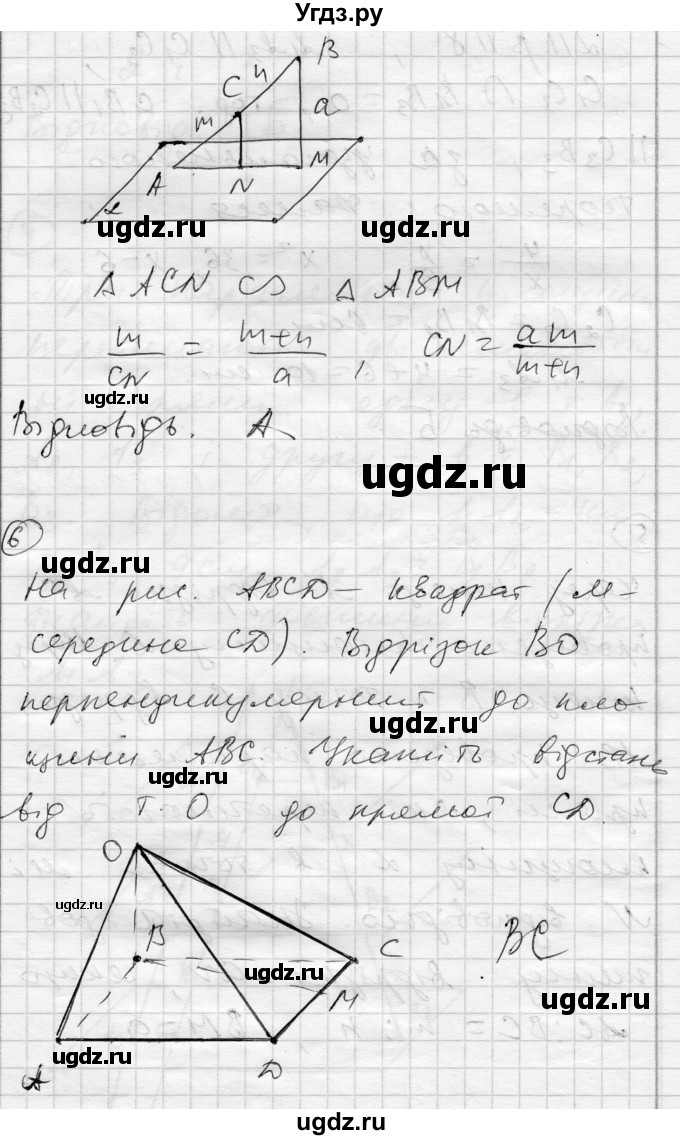 Угдз.ру
B
n
C
a
m
A
N
M
α
ugdz.ru
ugdz.ru
Δ ACN ∽ Δ ABM
m/CN = (m+n)/a , CN = am/(m+n)
ugdz.ru
Відповідь. А
ugdz.ru
6
ugdz.ru
На рис. ABCD – квадрат (M-
середина CD). Відрізок BO
перпендикулярний до пло-
ugdz.ru
щини ABC. Укажіть відстань
ugdz.ru
від т. O до прямої CD.
O
ugdz.ru
B
C
BC
ugdz.ru
M
ugdz.ru
ugdz.ru
A
D
ugdz.ru